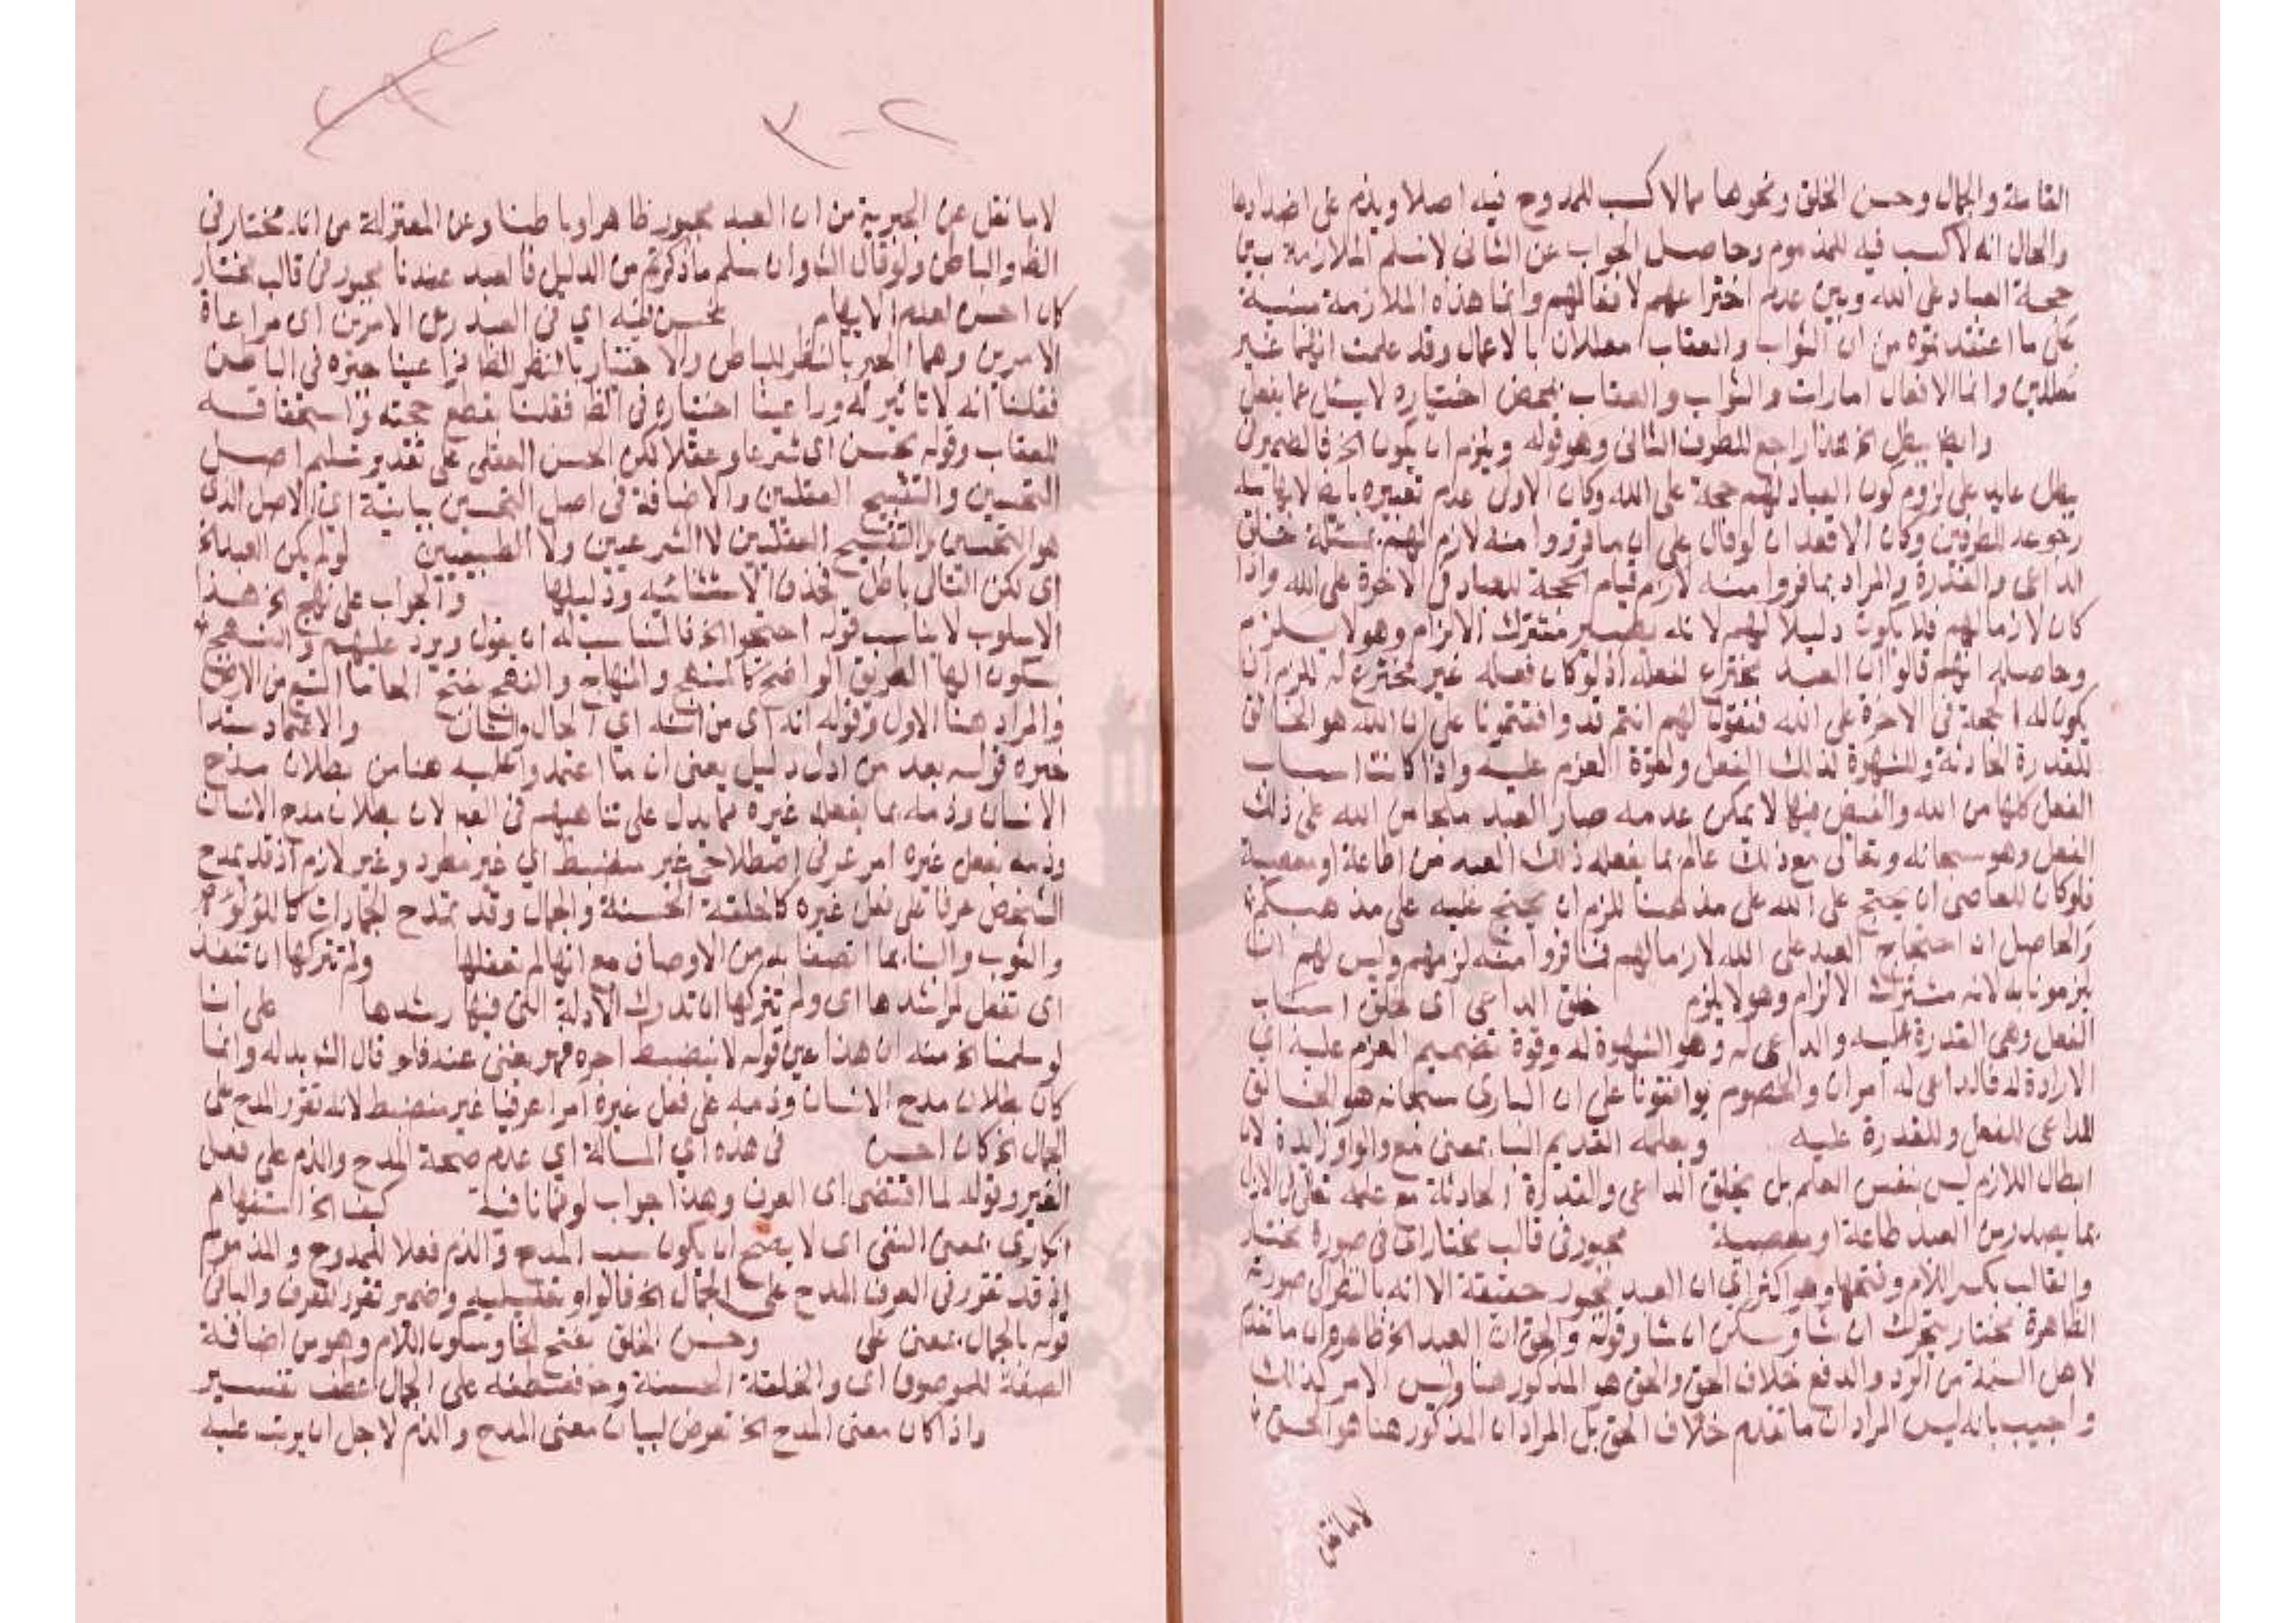 القامة والجمال وحسن الخلق ونحوها مما لا كسب للممدوح فيه اصلا ويذم على اضدادها
والحال انه لا كسب فيه للمذموم وحاصل الجواب عن الثانى لا نسلم الملازمة بين
حجة العباد على الله وبين عدم اختراعهم لافعالهم وانما هذه الملازمة مبنية
على ما اعتقدتموه من ان الثواب والعقاب معللان بالاعمال وقد علمت انهما غير
معللين وانما الافعال امارات والثواب والعقاب بمحض اختياره لا يسئل عما يفعل
وايضا يبطل الخ هذا راجع للطرف الثانى وهو قوله ويلزم ان يكون الخ فالضمير فى
يبطل عايد على لزوم كون العباد لهم حجة على الله وكان الاولى عدم تعبيره بايضا لايهامه
رجوعه للطرفين وكان الاقعد ان لو قال على ان ما فروا منه لازم لهم بمسئلة خلق
الداعى والقدرة والمراد بما فروا منه لازم قيام الحجة للعباد فى الاخرة على الله واذا
كان لازما لهم فلا يكون دليلا لهم لانه يصير مشترك الالزام وهو لا يلزم
وحاصله انهم قالوا ان العبد مخترع لفعله اذ لو كان فعله غير مخترع له للزم ان
يكون له الحجة فى الاخرة على الله فنقول لهم انتم قد وافقتمونا على ان الله هو الخالق
للقدرة الحادثة والشهوة لذلك الفعل ولقوة العزم عليه واذا كانت اسباب
الفعل كلها من الله والفيض فيها لا يمكن عدمه صار العبد ملجا من الله على ذلك
الفعل وهو سبحانه وتعالى مع ذلك عالم بما يفعله ذلك العبد من طاعة او معصية
فلو كان للعاصى ان يحتج على الله على مذهبنا للزم ان يحتج عليه على مذهبكم
والحاصل ان احتجاج العبد على الله لازما لهم فما فروا منه لزمهم وليس لهم ان
يلزمونا به لانه مشترك الالزام وهو لا يلزم خلق الداعى اى خلق اسباب
الفعل وهى القدرة عليه والداعى له وهو الشهوة له وقوة تصميم العزم عليه اي
الارادة له فالداعى له امران والخصوم يوافقونا على ان البارى سبحانه هو الخالق
للداعى للفعل وللقدرة عليه وبعلمه القديم الباء بمعنى مع والواو زايدة لان
ابطال اللازم ليس بنفس العلم بل بخلق الداعى والقدرة الحادثة مع علمه تعالى فى الازل
بما يصدر من العبد طاعة او معصية مجبور فى قالب مختار اى فى صورة مختار
والقالب بكسر اللام وفتحها وهو اكثر اى ان العبد مجبور حقيقة الا انه بالنظر الى صورته
الظاهرة مختار يتحرك ان شا ويسكن ان شا وقوله والحق ان العبد الخ ظاهره ان ما تقدم
لاهل السنة من الرد والدفع خلاف الحق والحق هو المذكور هنا وليس الامر كذلك
واجيب بانه ليس المراد ان ما تقدم خلاف الحق بل المراد ان المذكور هنا هو الحق
لا ما نقل
لا ما نقل عن الجبرية من ان العبد مجبور ظاهرا وباطنا وعن المعتزلة من انه مختار فى
الظ والباطن ولو قال الش وان سلم ما ذكرتم من الدليل فالعبد عندنا مجبور فى قالب مختار
كان احسن لعدم الايهام يحسن فيه اي فى العبد رعى الامرين اى مراعاة
الامرين وهما الجبر بالنظر للباطن والاختيار بالنظر للظا فراعينا جبره فى الباطن
فقلنا انه لا تاثير له وراعينا اختياره فى الظ فقلنا بقطع حجته واستحقاقه
للعقاب وقوله يحسن اى شرعا وعقلا لكن الحسن العقلى على تقدير تسليم اصل
التحسين والتقبيح العقليين والاضافة فى اصل التحسين بيانية اي الاصل الذى
هو التحسين والتقبيح العقليين لا الشرعيين ولا الطبيعيين لو لم يكن العبد الخ
اى لكن التالى باطل فحذف الاستثنائيه ودليلها والجواب على نهج الخ هذا
الاسلوب لا يناسب قوله احتجوا الخ فالمناسب له ان يقول ويرد عليهم والنهج
بسكون الها الطريق الواضح كالمنهج والمنهاج والنهج بفتح الها ما اتسع من الارض
والمراد هنا الاول وقوله انه اى من انه اى الحال والشان والاعتماد مبتدا
خبره قوله بعد من ادل دليل يعنى ان ما اعتمدوا عليه هنا من بطلان مدح
الانسان وذمه بما يفعله غيره مما يدل على تناهيهم فى العى لان بطلان مدح الانسان
وذمه بفعل غيره امر عرفى اصطلاحى غير منضبط اي غير مطرد وغير لازم اذ قد يمدح
الشخص عرفا على فعل غيره كالخلقة الحسنة والجمال وقد تمدح الجمادات كاللؤلؤة
والثوب والبنا بما اتصفا به من الاوصاف مع انها لم تفعلها ولم تتركها ان تنفذ
اى تفعل لمراشدها اى ولم تتركها ان تدرك الادلة التى فيها رشدها على انا
لو سلمنا الخ منه ان هذا عين قوله لا ينضبط اخره فهو يغنى عنه فلو قال الش بدله وانما
كان بطلان مدح الانسان وذمه على فعل غيره امرا عرفيا غير منضبط لانه تقرر المدح على
الجمال الخ كان احسن فى هذه اي المسالة اي عدم صحة المدح والذم على فعل
الغير وقوله لما اقتضى اى العرف وهذا جواب لو فما نافية كيف الخ استفهام
انكارى بمعنى النفى اى لا يصح ان يكون سبب المدح والذم فعلا للممدوح والمذموم
اذ قد تقرر فى العرف المدح على الجمال الخ فالواو تعليلية وضمير تقرر للعرف والبا فى
قوله بالجمال بمعنى على وحسن الخلق بفتح الخا وسكون اللام وهو من اضافة
الصفة للموصوف اى والخلقة الحسنة وح فعطفه على الجمال عطف تفسير
واذا كان معنى المدح الخ تعرض لبيان معنى المدح والذم لاجل ان يرتب عليه